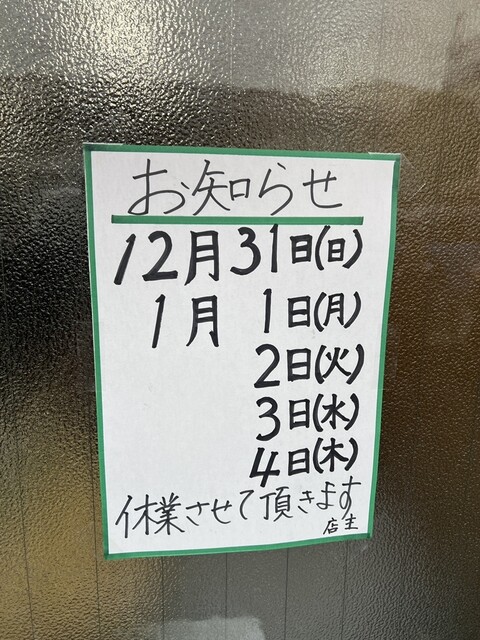 お知らせ
12月31日(日)
1月 1日(月)
2日(火)
3日(水)
4日(木)
休業させて頂きます
店主